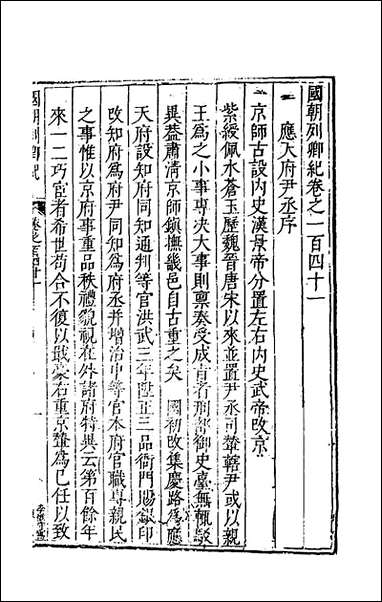 國朝列卿紀卷之一百四十一
應天府尹丞序
京師古設內史漢景帝分置左右內史武帝改京
紫綬佩水蒼玉歷魏晉唐宋以來並置尹丞司輦轄尹或以親
王為之小事專決大事則稟奏受成者刑部御史臺無輒
異蓋肅清京師鎮撫畿邑自古重之矣 國初改集慶路為應
天府設知府同知通判等官洪武三年陞正三品衙門賜銀印
改知府為府尹同知為府丞并增治中等官本府官職專親民
之事惟以京府事重品秩禮貌視在外諸府特異云第百餘年
來一二巧宦者希世苟合不復以戢豪右重京輦為己任以致
國朝列卿紀